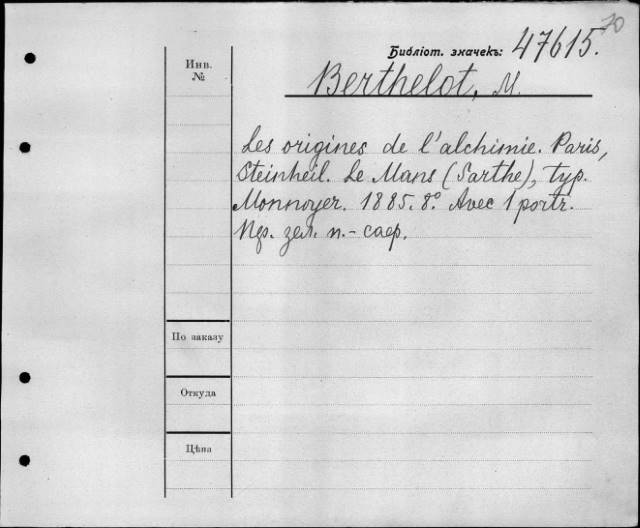 70
Библіот. значекъ: 47615.
Инв.
№
Berthelot, M.
Les origines de l'alchimie. Paris,
Steinheil. Le Mans (Sarthe), typ.
Monnoyer. 1885. 8°. Avec 1 portr.
зел. п.-саф.
По заказу
Откуда
Цѣна